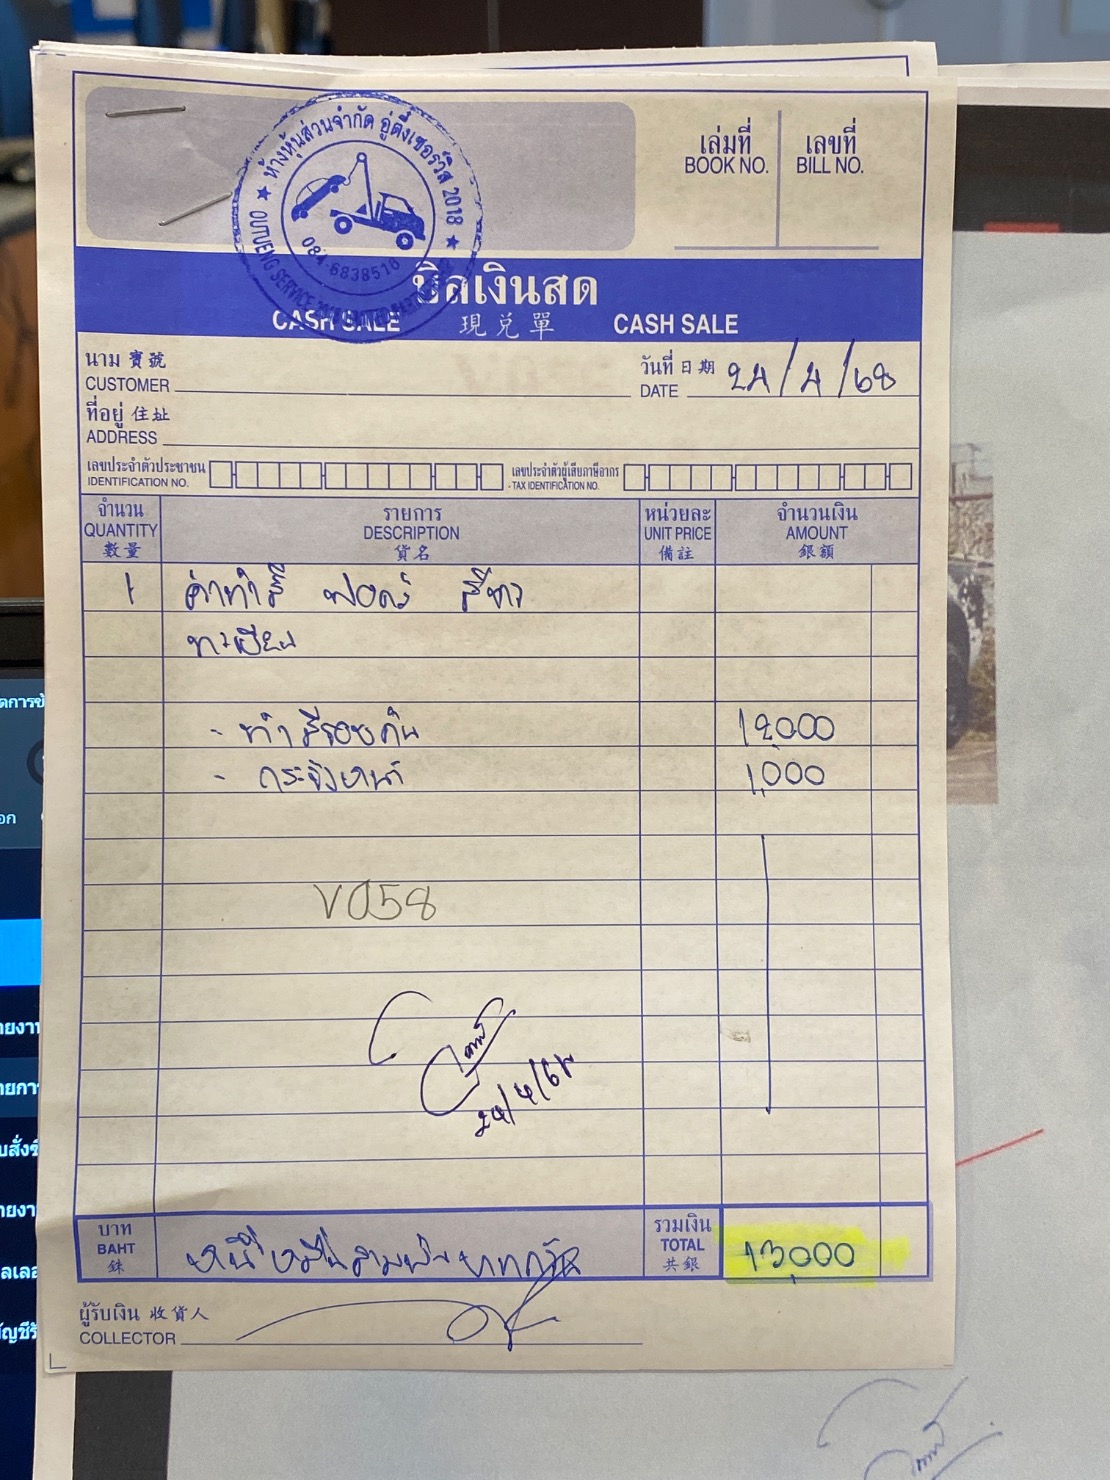 ห้างหุ้นส่วนจำกัด อู่ตึ๋งเซอร์วิส 2018
084-6838516
OUTUENG SERVICE 2018 LIMITED PARTNERSHIP
เล่มที่ เลขที่
BOOK NO. BILL NO.
บิลเงินสด
CASH SALE 現兌單 CASH SALE
นาม 寶號 วันที่ 日期
CUSTOMER DATE 24/4/68
ที่อยู่ 住址
ADDRESS
เลขประจำตัวประชาชน เลขประจำตัวผู้เสียภาษีอากร
IDENTIFICATION NO. TAX IDENTIFICATION NO.
จำนวน รายการ หน่วยละ จำนวนเงิน
QUANTITY DESCRIPTION UNIT PRICE AMOUNT
數量 貨名 備註 銀額
1 ค่าทำสี ฟอดร์ สีขาว
ทะเบียน
- ทำสีรอบคัน 12,000
- กระจังหน้า 1,000
V058
24/4/68
บาท รวมเงิน
BAHT หนึ่งหมื่นสามพันบาทถ้วน TOTAL 13,000
銖 共銀
ผู้รับเงิน 收貨人
COLLECTOR